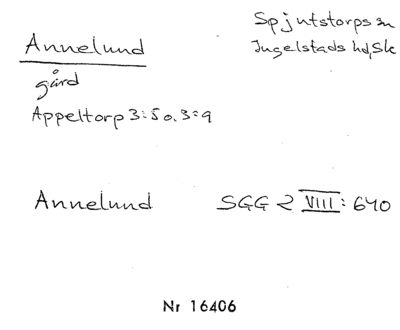 Annelund
Spjutstorps sn
Ingelstads hd, Sk
gård
Appeltorp 3:5 o. 3:9
Annelund SGG 2 VIII: 640
Nr 16406